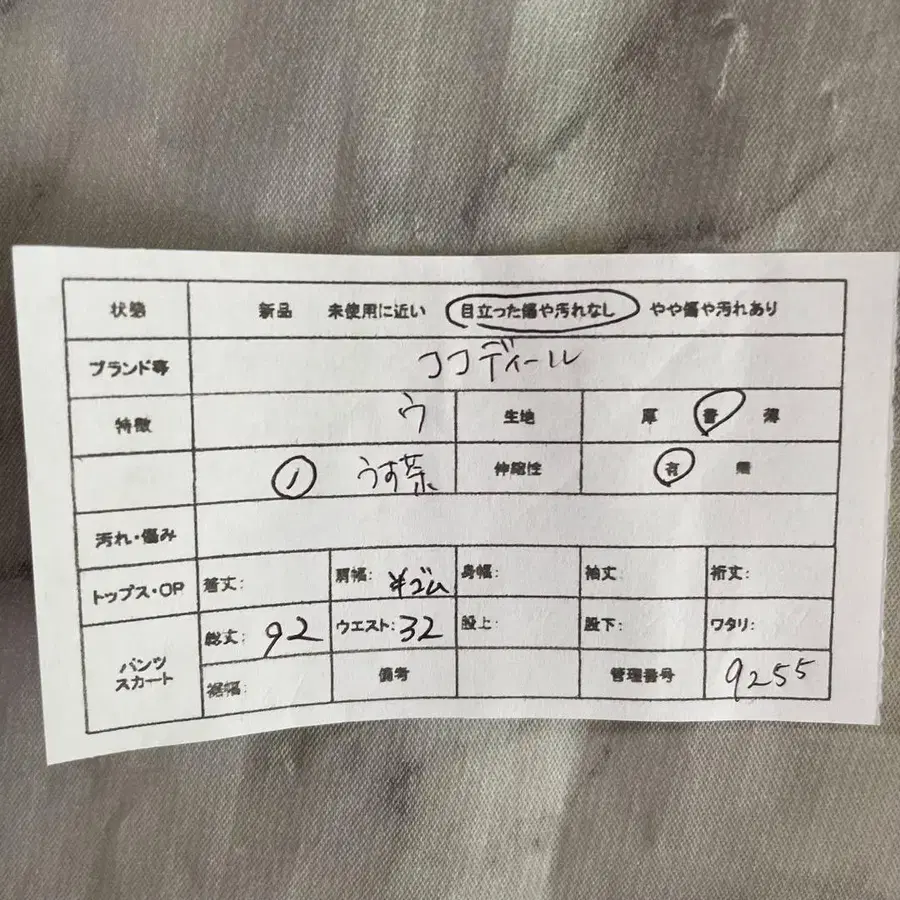 状態 新品 未使用に近い 目立った傷や汚れなし やや傷や汚れあり
ブランド等 ココディール
特徴 ウ 生地 厚 普 薄
① うす茶 伸縮性 有 無
汚れ・傷み
トップス・OP 着丈: 肩幅: ゴム 身幅: 袖丈: 裄丈:
パンツ スカート 総丈: 92 ウエスト: 32 股上: 股下: ワタリ:
裾幅: 備考 管理番号 9255